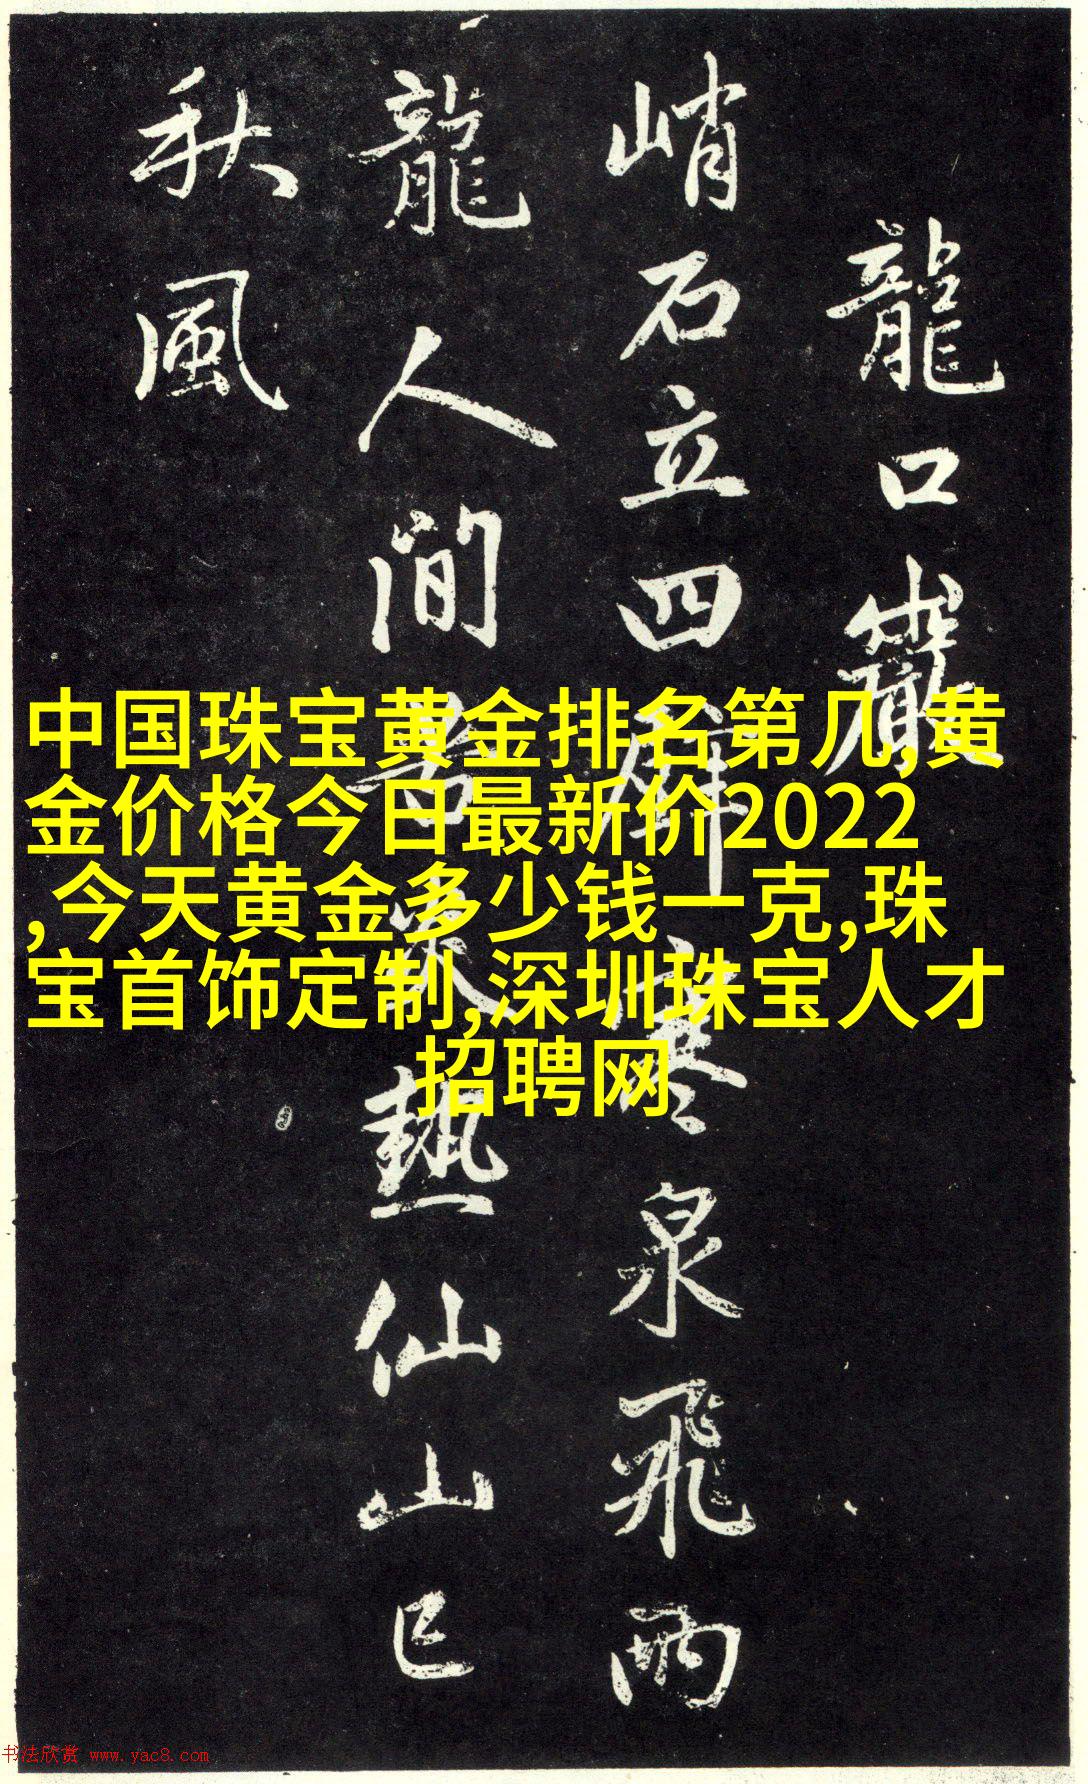 龍口巖
峭石立四壁寒泉飛兩
龍人間苦炎熱仙山已
秋風
中国珠宝黄金排名第几,黄
金价格今日最新价2022
,今天黄金多少钱一克,珠
宝首饰定制,深圳珠宝人才
招聘网
书法欣赏 www.yac8.com